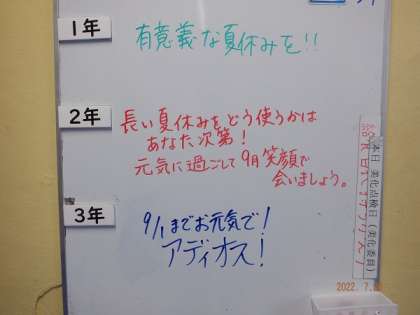 1年
有意義な夏休みを!!
2年
長い夏休みをどう使うかは
あなた次第!
元気に過ごして9月笑顔で
会いましょう。
3年
9/1までお元気で!
アディオス!
本日 美化点検日(美化委員)